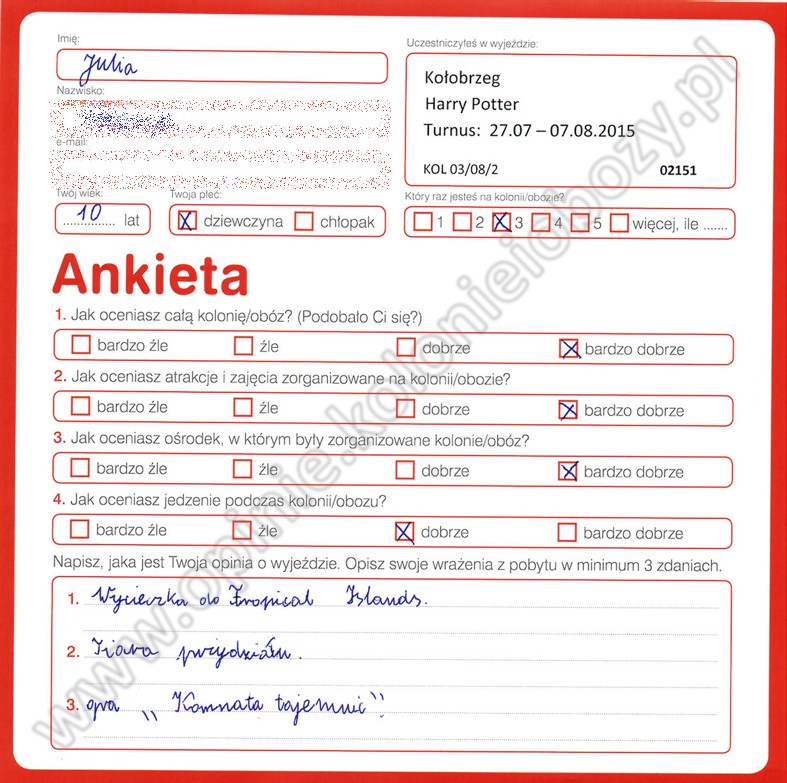 Imię:
Julia
Uczestniczyłeś w wyjeździe:
Kołobrzeg
Harry Potter
Turnus: 27.07 – 07.08.2015
KOL 03/08/2 02151
Nazwisko:
e-mail:
Twój wiek:
10 lat
Twoja płeć:
dziewczyna chłopak
Który raz jesteś na kolonii/obozie?
1 2 3 4 5 więcej, ile .......
Ankieta
1. Jak oceniasz całą kolonię/obóz? (Podobało Ci się?)
bardzo źle źle dobrze bardzo dobrze
2. Jak oceniasz atrakcje i zajęcia zorganizowane na kolonii/obozie?
bardzo źle źle dobrze bardzo dobrze
3. Jak oceniasz ośrodek, w którym były zorganizowane kolonie/obóz?
bardzo źle źle dobrze bardzo dobrze
4. Jak oceniasz jedzenie podczas kolonii/obozu?
bardzo źle źle dobrze bardzo dobrze
Napisz, jaka jest Twoja opinia o wyjeździe. Opisz swoje wrażenia z pobytu w minimum 3 zdaniach.
1. Wycieczka do Tropical Islands.
2. Tiara przydziału.
3. gra „Komnata tajemnic"
www.opinie.kolonieiobozy.pl